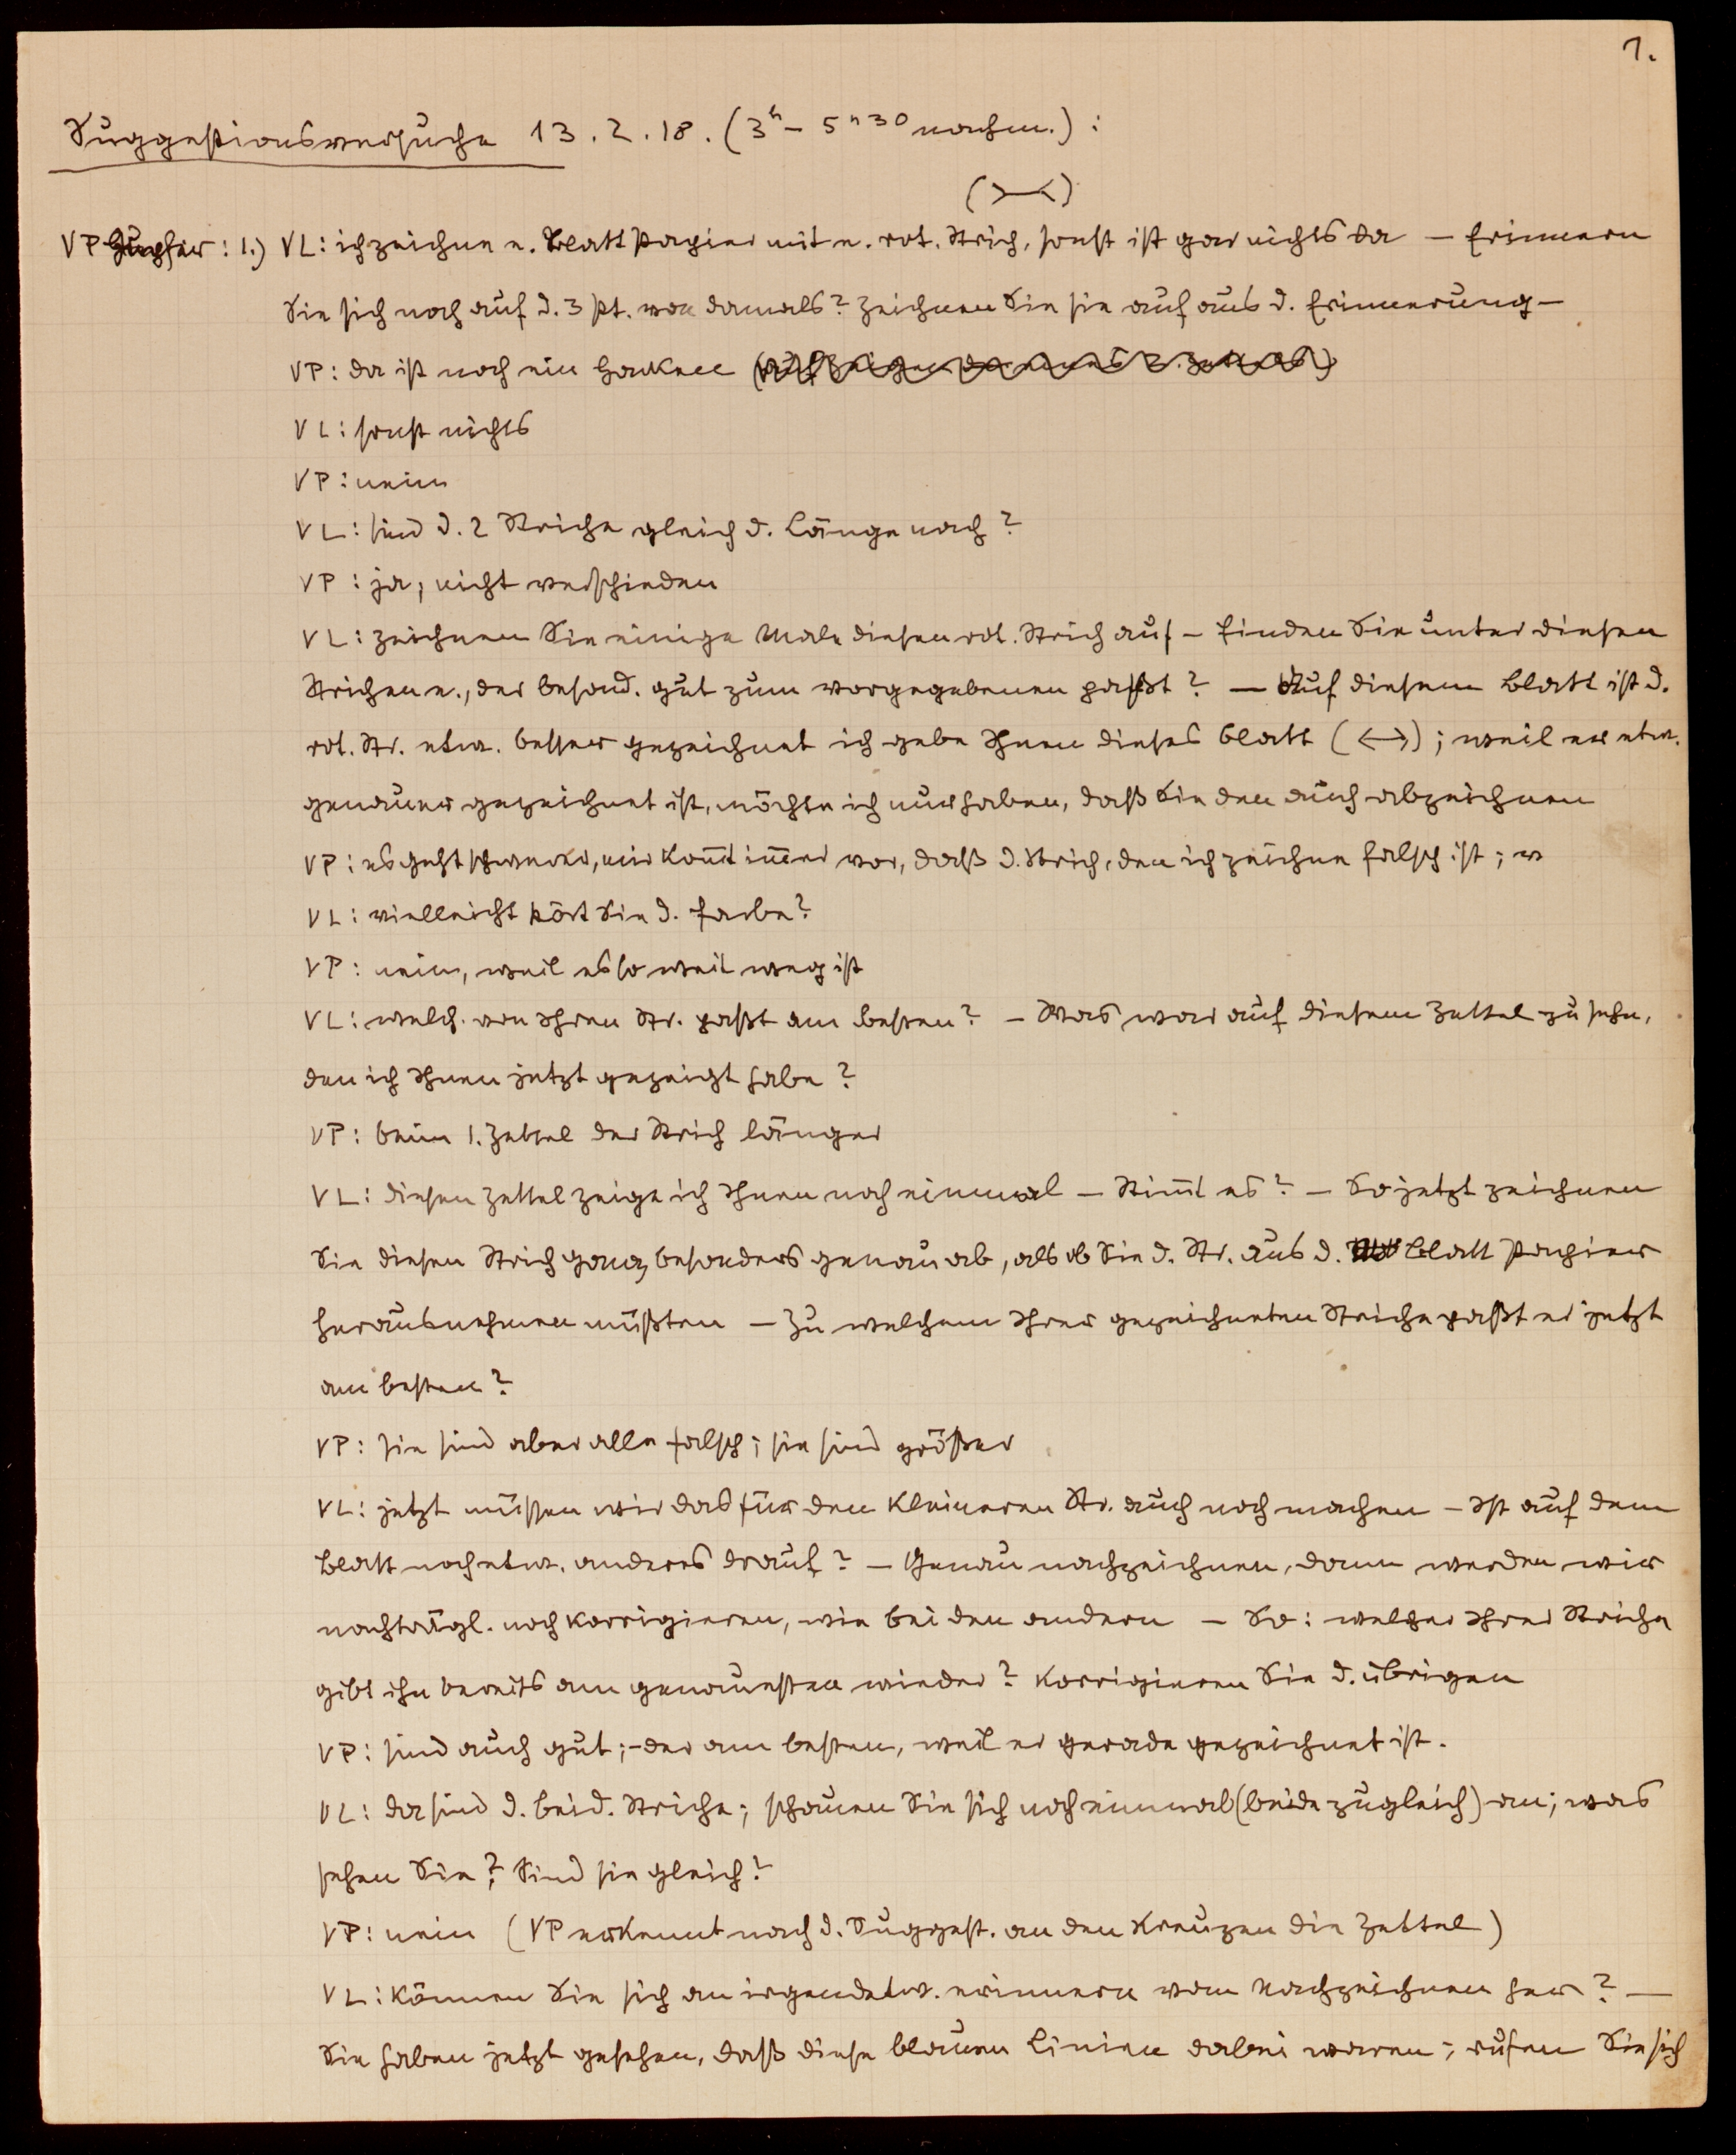 1.
Suggestionsversuche 13.2.18. (3ʰ - 5ʰ30 nachm.) :
(>—<)
VP : 1.) VL: ich zeichne e. Blatt Papier mit e. rot. Strich, sonst ist gar nichts da — Erinnern
Sie sich noch auf d. 3 St. von damals? Zeichnen Sie sie auf aus d. Erinnerung —
VP: da ist noch ein
VL: sonst nichts
VP: nein
VL: sind d. 2 Striche gleich d. Länge nach?
VP: ja, nicht verschieden
VL: zeichnen Sie einige Male diesen rot. Strich auf — finden Sie unter diesen
Strichen e., der besond. gut zum vorgegebenen paßt? — Auf diesem Blatt ist d.
rot. Str. etw. besser gezeichnet ich gebe Ihnen dieses Blatt (<—>); weil er etw.
genauer gezeichnet ist, möchte ich nur haben, daß Sie den auch abzeichnen
VP: es geht schwerer, mir kom̄t im̄er vor, daß d. Strich, den ich zeichne falsch ist;
VL: vielleicht stört Sie d. Farbe?
VP: nein, weil es so weit weg ist
VL: welch. von Ihren Str. paßt am besten? — Was war auf diesem Zettel zu sehn,
den ich Ihnen jetzt gezeigt habe?
VP: beim 1. Zettel der Strich länger
VL: diesen Zettel zeige ich Ihnen noch einmal — Stim̄t es? — So jetzt zeichnen
Sie diesen Strich ganz besonders genau ab, als ob Sie d. Str. aus d. Blatt Papier
herausnehmen müßten — Zu welchem Ihrer gezeichneten Striche paßt er jetzt
am besten?
VP: sie sind aber alle falsch; sie sind größer
VL: jetzt müssen wir das für den kleineren Str. auch noch machen — Ist auf dem
Blatt noch etw. anderes drauf? — Genau nachzeichnen, dann werden wir
nachträgl. noch korrigieren, wie bei den andern — So: welcher Ihrer Striche
gibt ihn bereits am genauesten wieder? Korrigieren Sie d. übrigen
VP: sind auch gut; — der am besten, weil er gerade gezeichnet ist.
VL: da sind d. beid. Striche; schauen Sie sich noch einmal (beide zugleich) an; was
sehen Sie? Sind sie gleich?
VP: nein (VP erkennt nach d. Suggest. an den Kreuzen die Zettel)
VL: Können Sie sich an irgendetw. erinnern vom Nachzeichnen her? —
Sie haben jetzt gesehen, daß diese blauen Linien dabei waren; rufen Sie sich